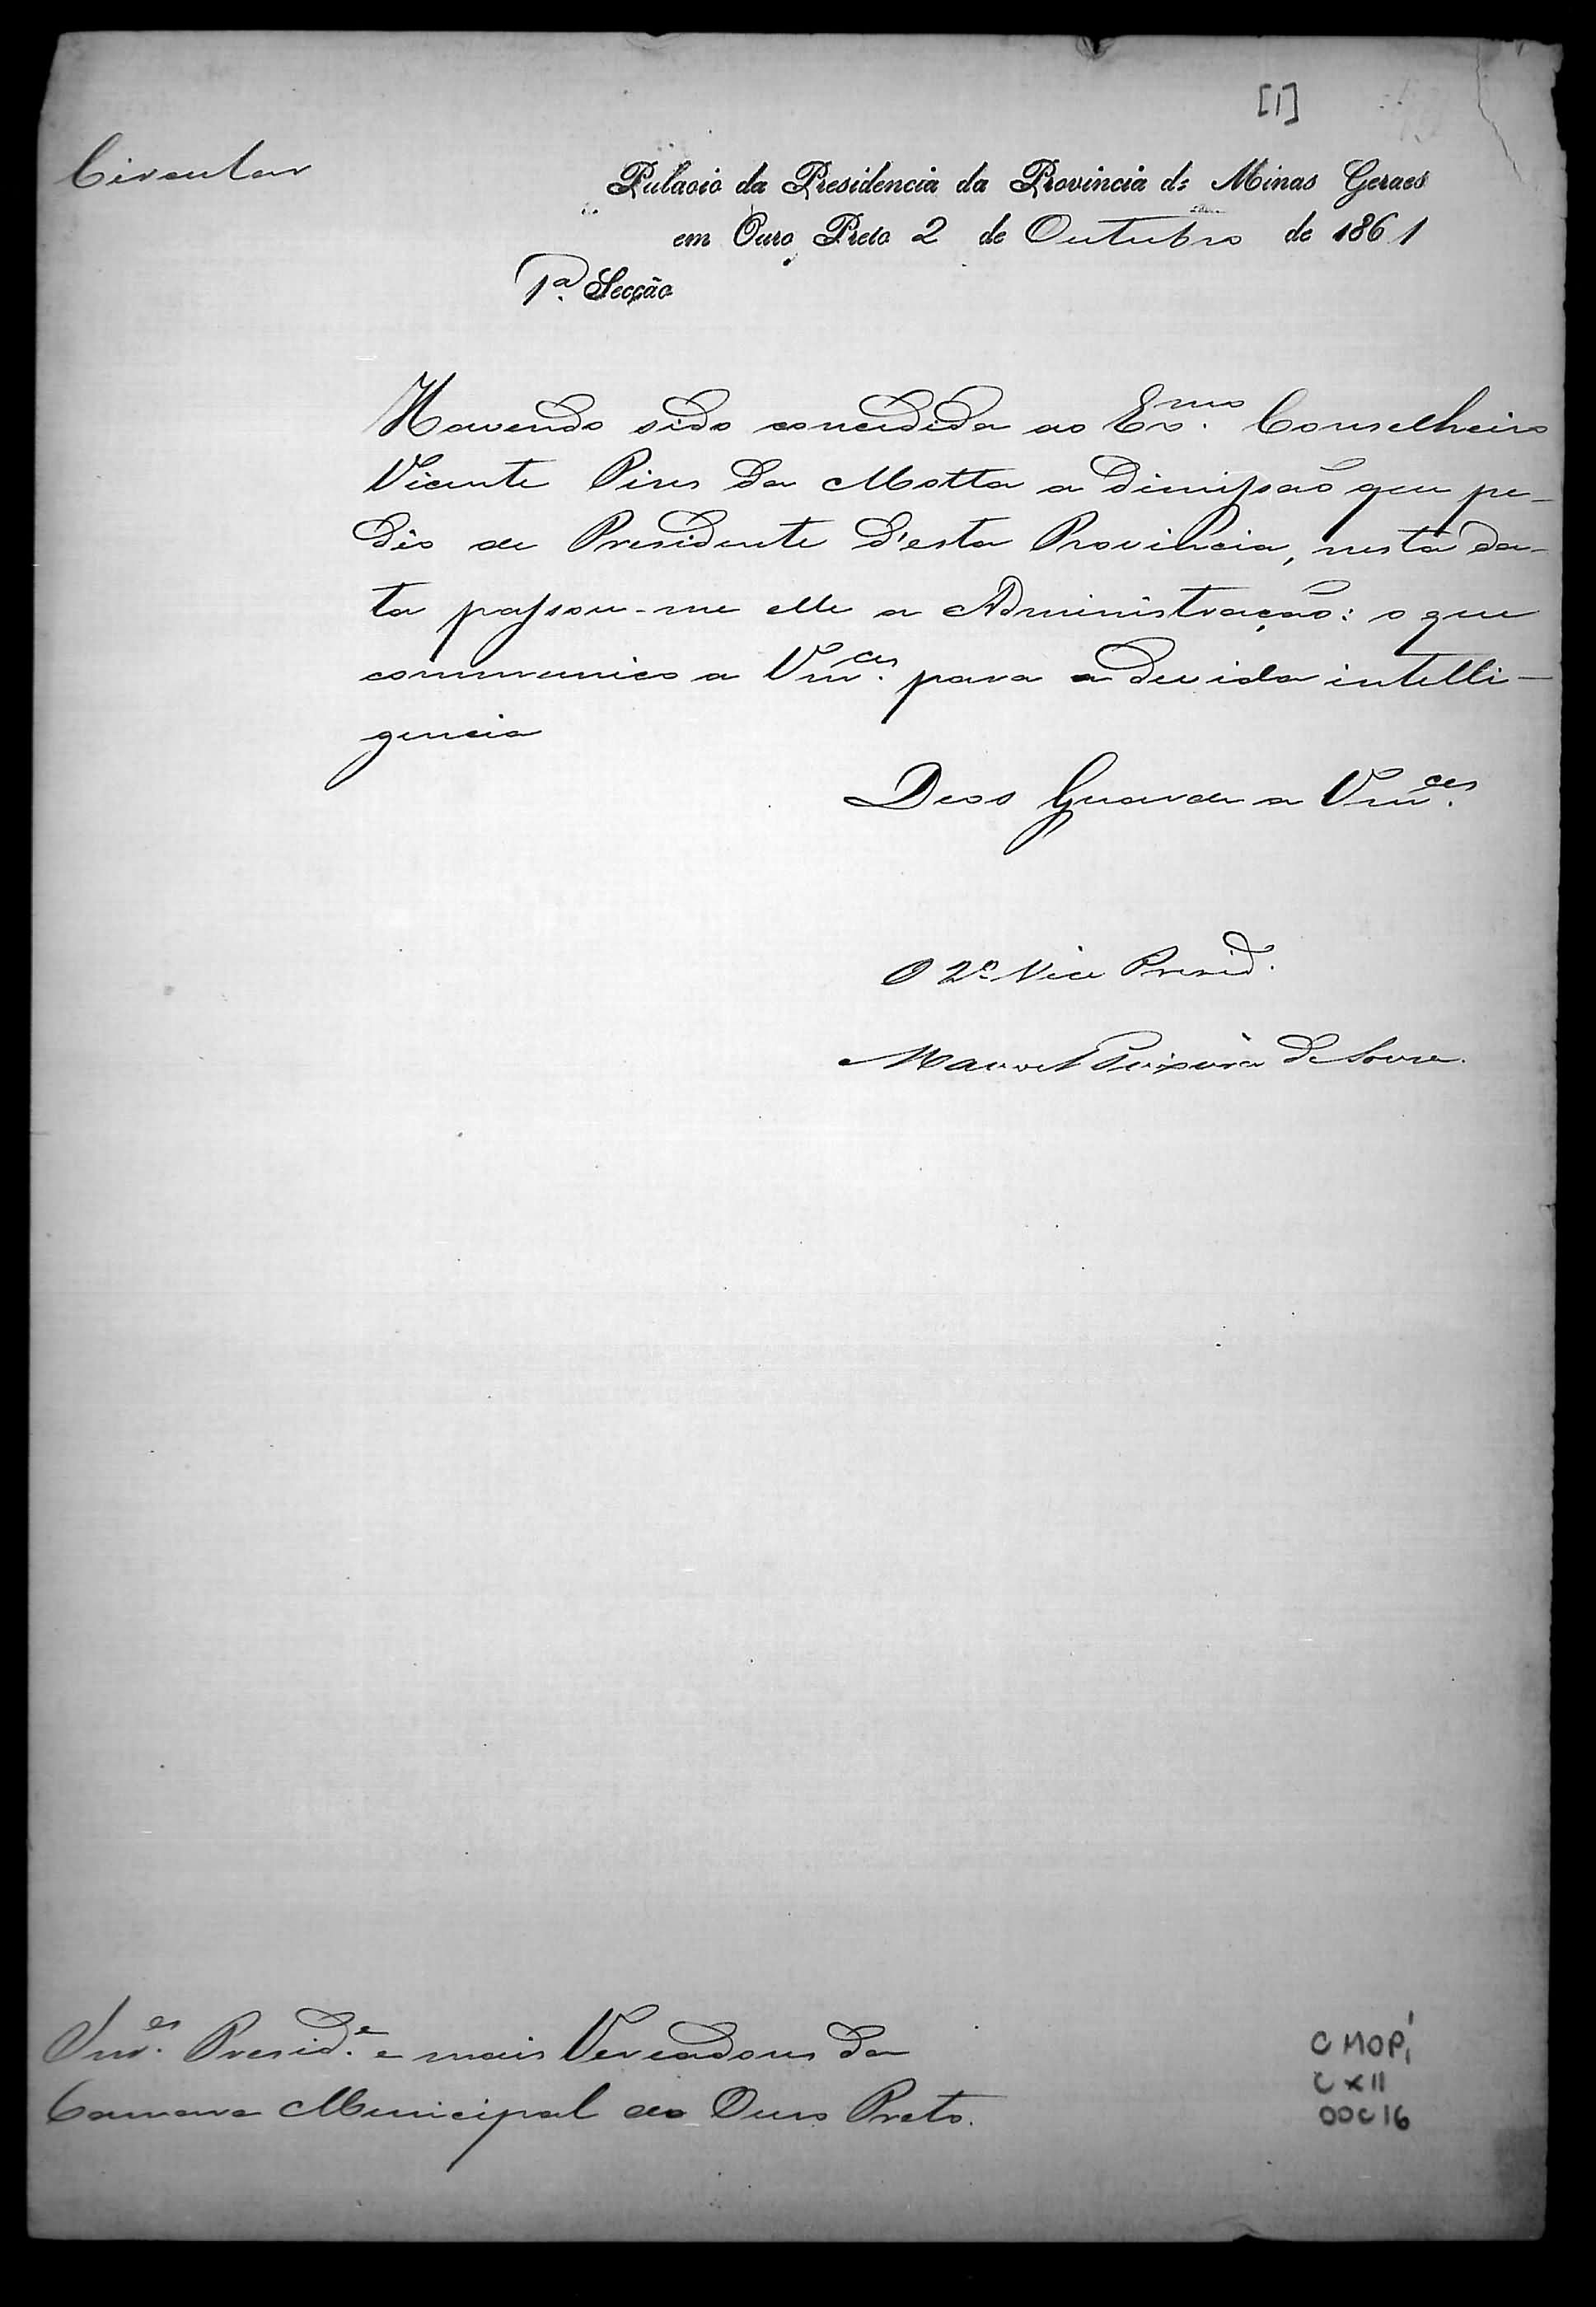 [1]
Circular
Palacio da Presidencia da Provincia de Minas Geraes
em Ouro Preto 2 de Outubro de 1861
1ª Secção
Havendo sido concedida ao Exmo. Conselheiro
Vicente Pires da Motta a dimissão que pe-
dio de Presidente d'esta Provincia, nesta da-
ta passou-me elle a Administração: o que
communico a Vmces. para a devida intelli-
gencia
Deos Guarde a Vmces.
O 2º Vice Presid.
Manoel Teixeira de Souza.
Snres. Preside. e mais Vereadores da
Camara Municipal do Ouro Preto.
CMOP,
CX11
DOC16